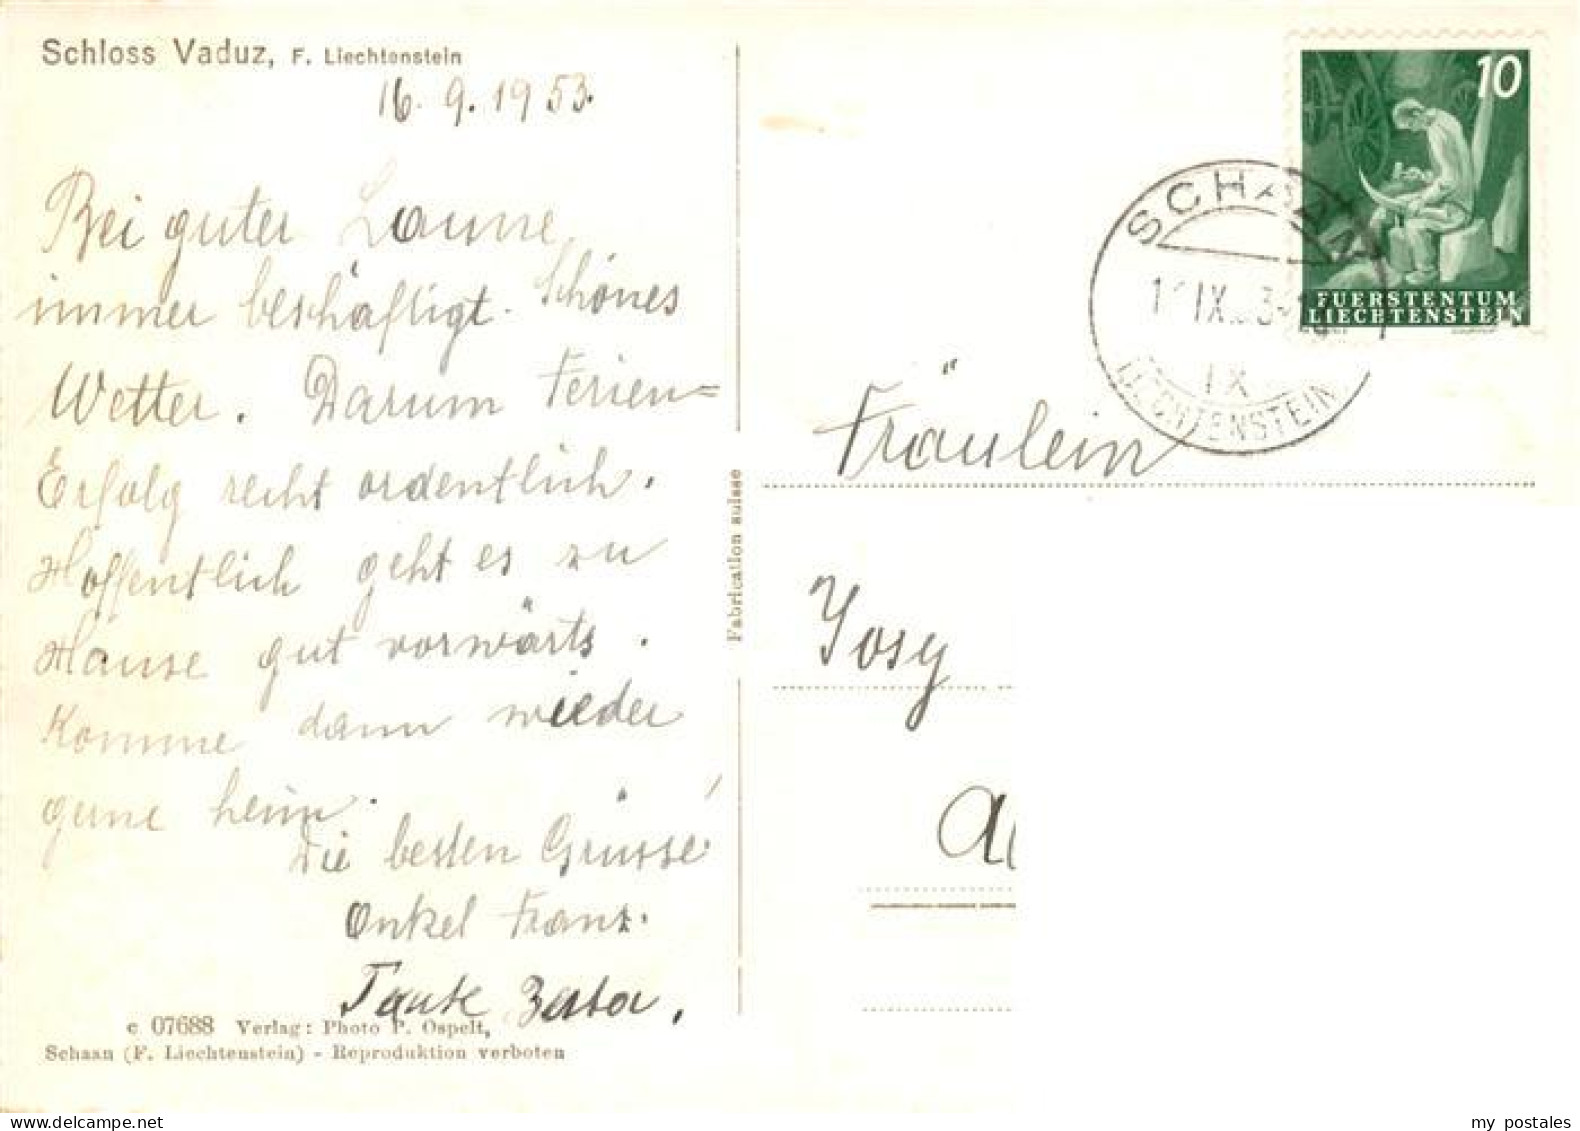 Schloss Vaduz, F. Liechtenstein
16. 9. 1953.
Bei guter Laune
immer beschäftigt. Schönes
Wetter. Darum Ferien=
Erfolg recht ordentlich.
Hoffentlich geht es zu
Hause gut vorwärts.
Komme dann wieder
gerne heim.
Die besten Grüsse!
Onkel Franz.
Tante
c 07688 Verlag: Photo P. Ospelt,
Schaan (F. Liechtenstein) - Reproduktion verboten
Fabrication suisse
10
FUERSTENTUM
LIECHTENSTEIN
SCHAAN
IX
LIECHTENSTEIN
Fräulein
Yosy
my postales